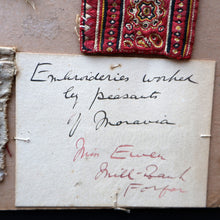 Embroideries worked
by peasants
of Moravia
Miss Ewen
Mill-Bank
Forfar